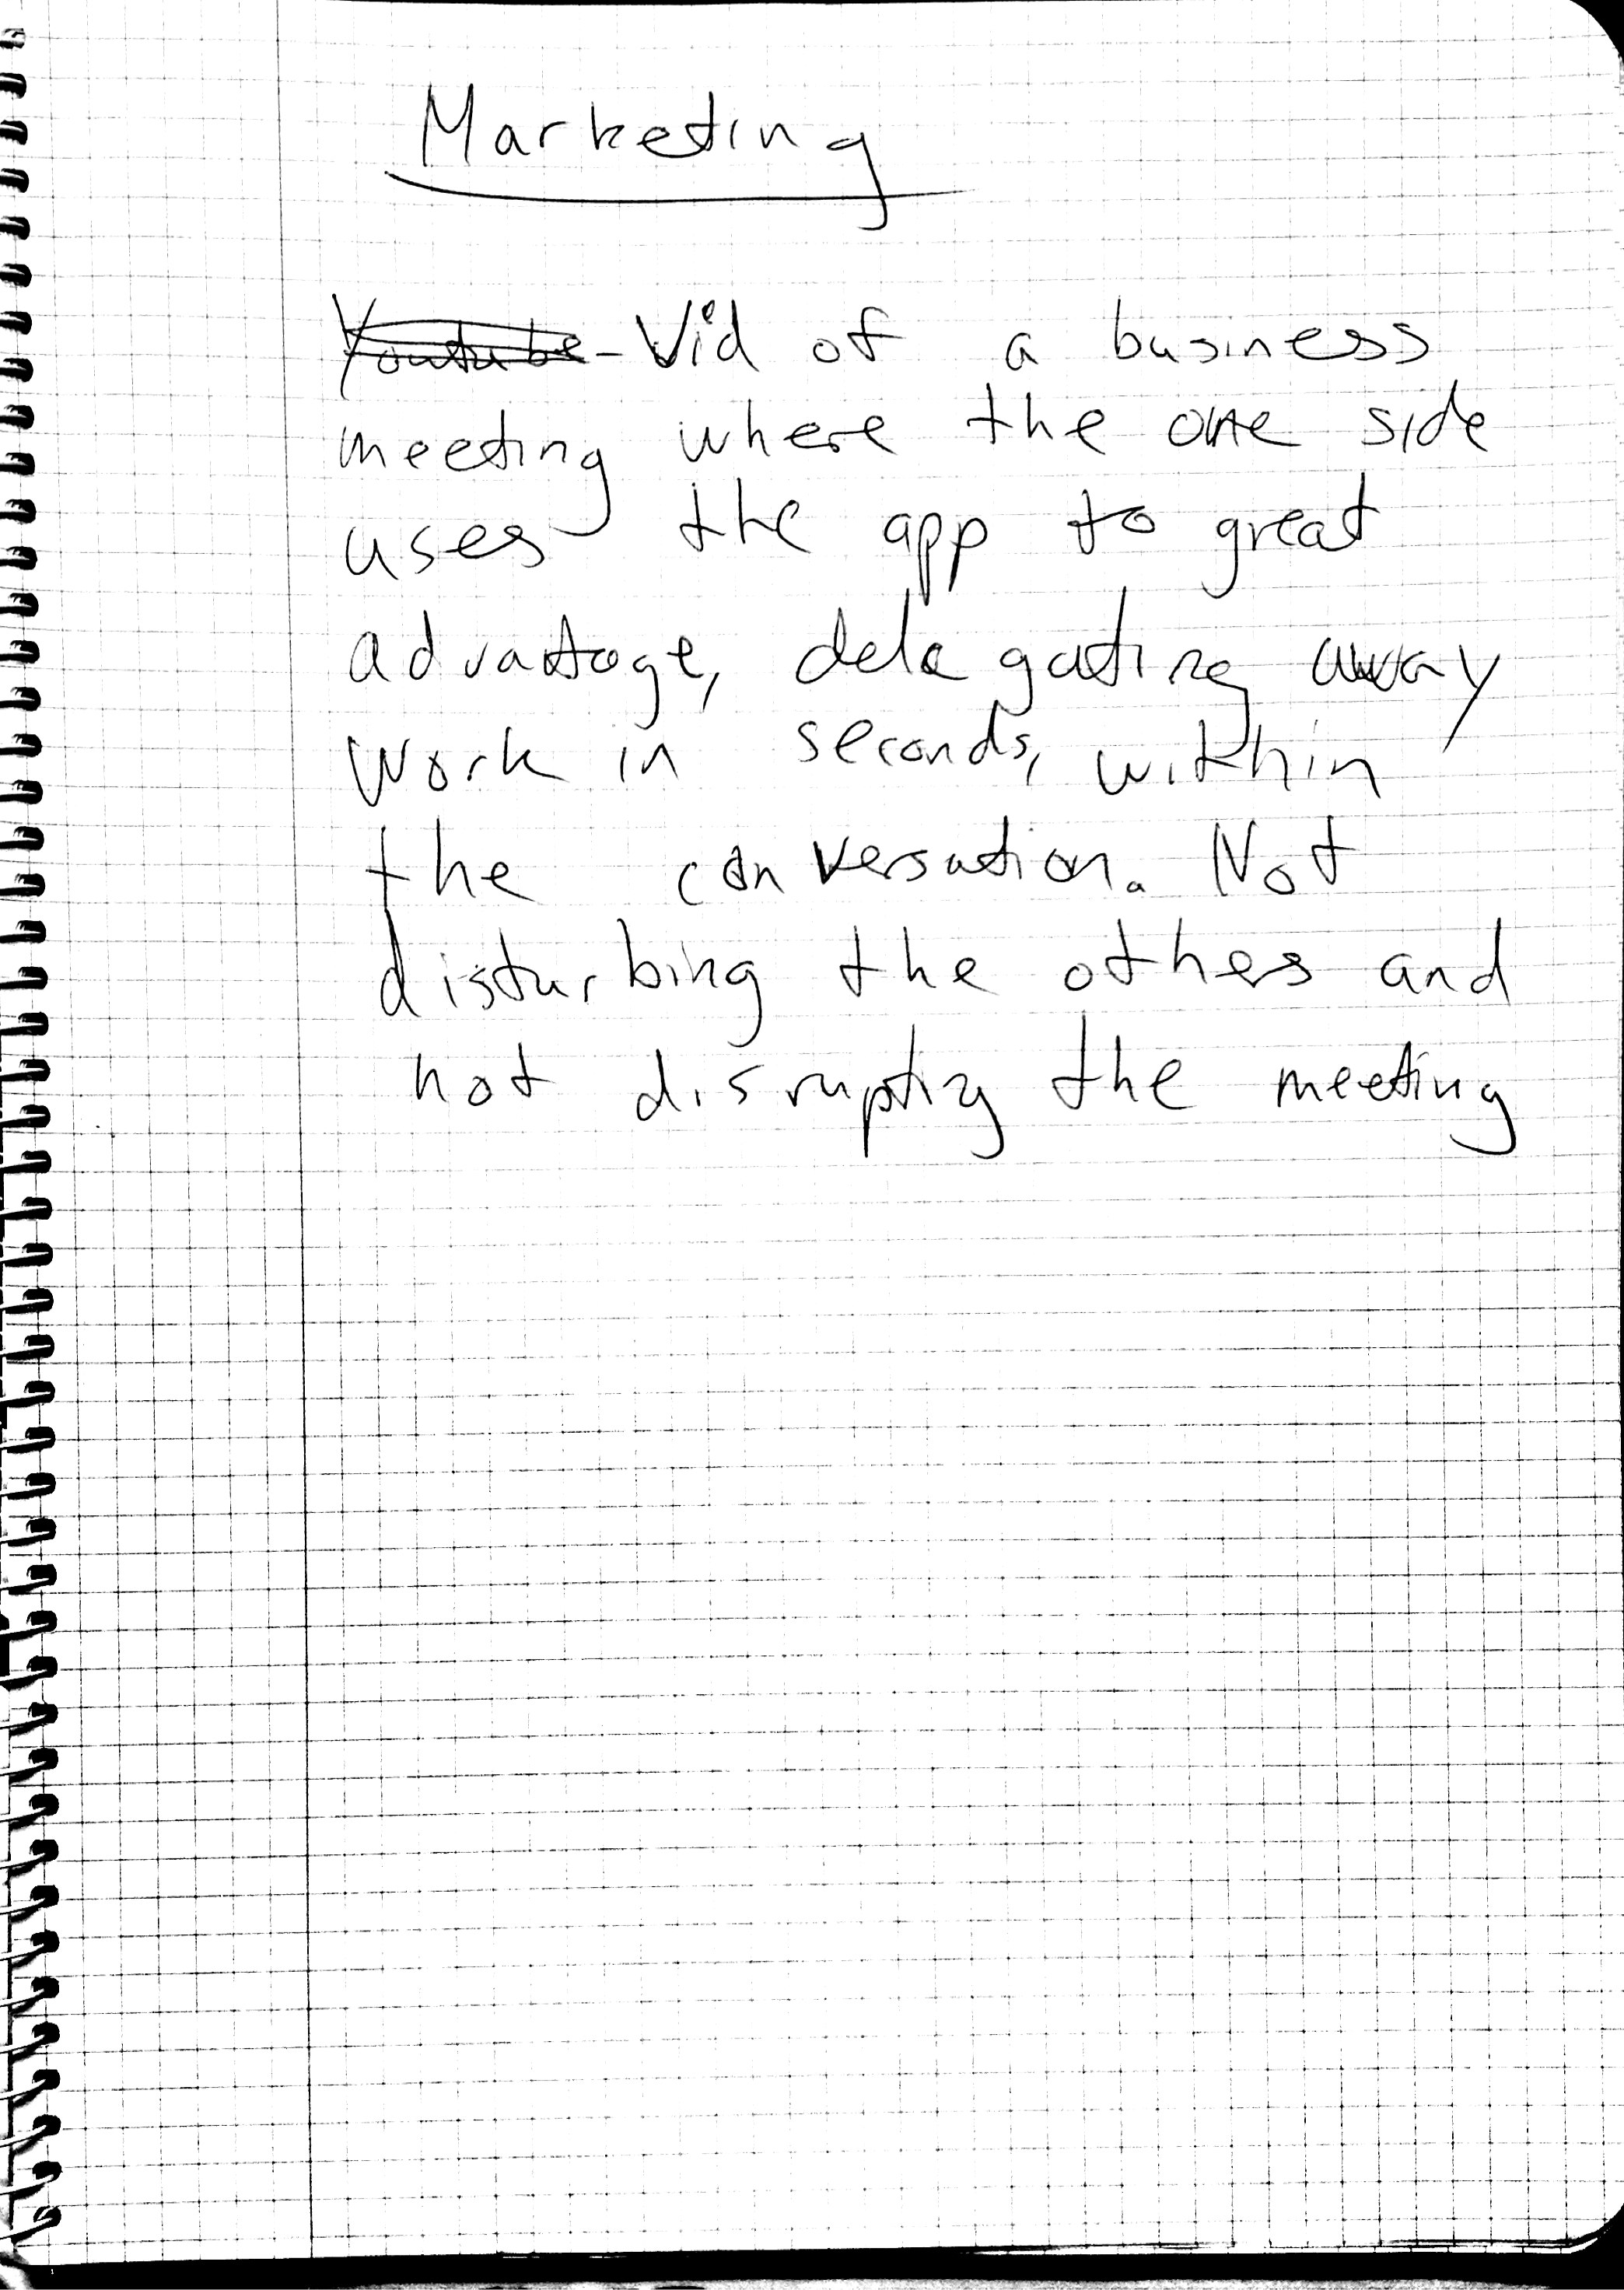 Marketing
Youtube - Vid of a business
meeting where the one side
uses the app to great
advantage, delegating away
work in seconds, within
the conversation. Not
disturbing the others and
not disrupting the meeting